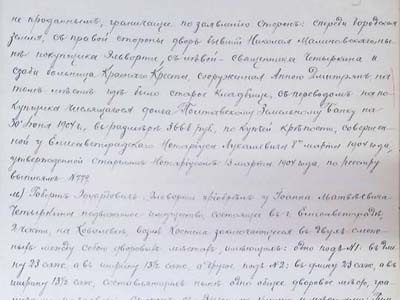 не проданнымъ, граничащее по заявленію сторонъ: спереди городская
земля, съ правой стороны дворъ бывшій Николая Малиновскаго ны-
нѣ покупщика Эльворти, съ лѣвой - священника Четыркина и
сзади больница Краснаго Креста, сооруженная Анною Дмитрянъ на
томъ мѣстѣ гдѣ было старое кладбище, съ переводомъ на по-
купщика числящагося долга Полтавскому Земельному Банку на
30 Іюня 1904 г. въ размѣрѣ 3661 руб. по купчей крѣпости, совершен-
ной у Елисаветградскаго Нотаріуса 8 марта 1904 года,
утвержденной Старшимъ Нотаріусомъ марта 1904 года, по реестру
№ 779.
Робертъ Эдуартовичъ Эльворти пріобрѣлъ у Іоанна Матвѣевича
Четыркина недвижимое имущество, состоящее въ г. Елисаветградѣ,
2 части, на Ковалевкѣ, заключающееся въ двухъ смеж-
ныхъ между собою дворовыхъ мѣстахъ, имѣющихъ: одно подъ № 1: въ дли-
ну 23 саж., а въ ширину 13½ саж. а другое подъ № 2: въ длину 23 саж., а въ
ширину 13½ саж. составляющихъ нынѣ одно общее дворовое мѣсто, гра-